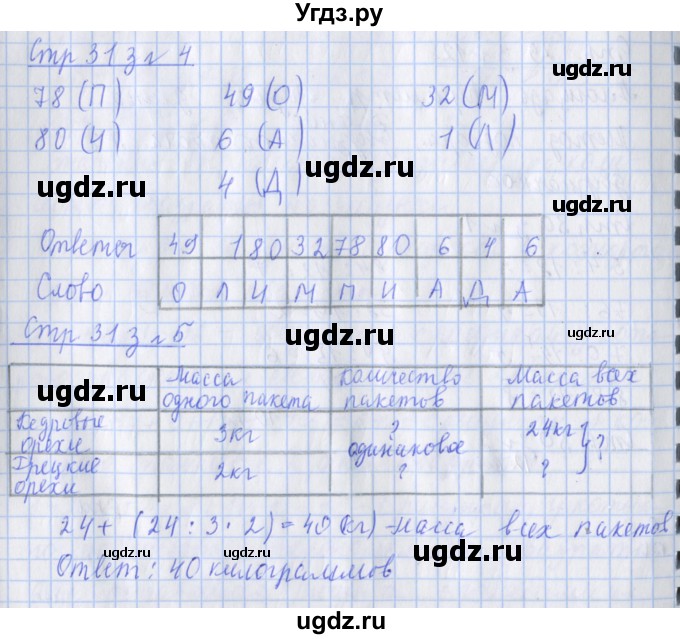 Угдз.ру
Стр 31 з № 4
ugdz.ru
78 (П) 49 (О) 32 (М)
ugdz.ru
80 (И) 6 (А) 1 (Л)
ugdz.ru
4 (Д)
ugdz.ru
ugdz.ru
Ответы 49 1 80 32 78 80 6 4 6
Слово О Л И М П И А Д А
ugdz.ru
Стр 31 з № 5
ugdz.ru
ugdz.ru
Масса одного пакета Количество пакетов Масса всех пакетов
ugdz.ru
Кедровые орехи 3кг ? 24кг
одинаковое ?
Грецкие орехи 2кг ? ?
24 + (24 : 3 · 2) = 40 (кг) - масса всех пакетов
ugdz.ru ugdz.ru ugdz.ru
Ответ: 40 килограммов
ugdz.ru
ugdz.ru